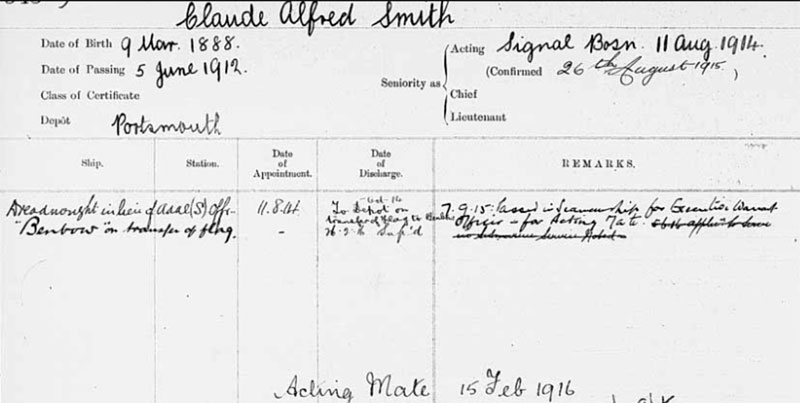 Claude Alfred Smith
Date of Birth 9 Mar. 1888.
Date of Passing 5 June 1912.
Class of Certificate
Depôt Portsmouth
Seniority as
Acting Signal Bosn. 11 Aug. 1914.
(Confirmed 26th August 1915.)
Chief
Lieutenant
Ship. Station. Date of Appointment. Date of Discharge. REMARKS.
Dreadnought in lieu of 11.8.14 To Depot on 7.9.15: Passed in Seamanship for Executive Warrant
"Benbow" on transfer of flag. - 26.2.16 Sup'd Officer - for Acting Mate.
Acting Mate 15 Feb 1916